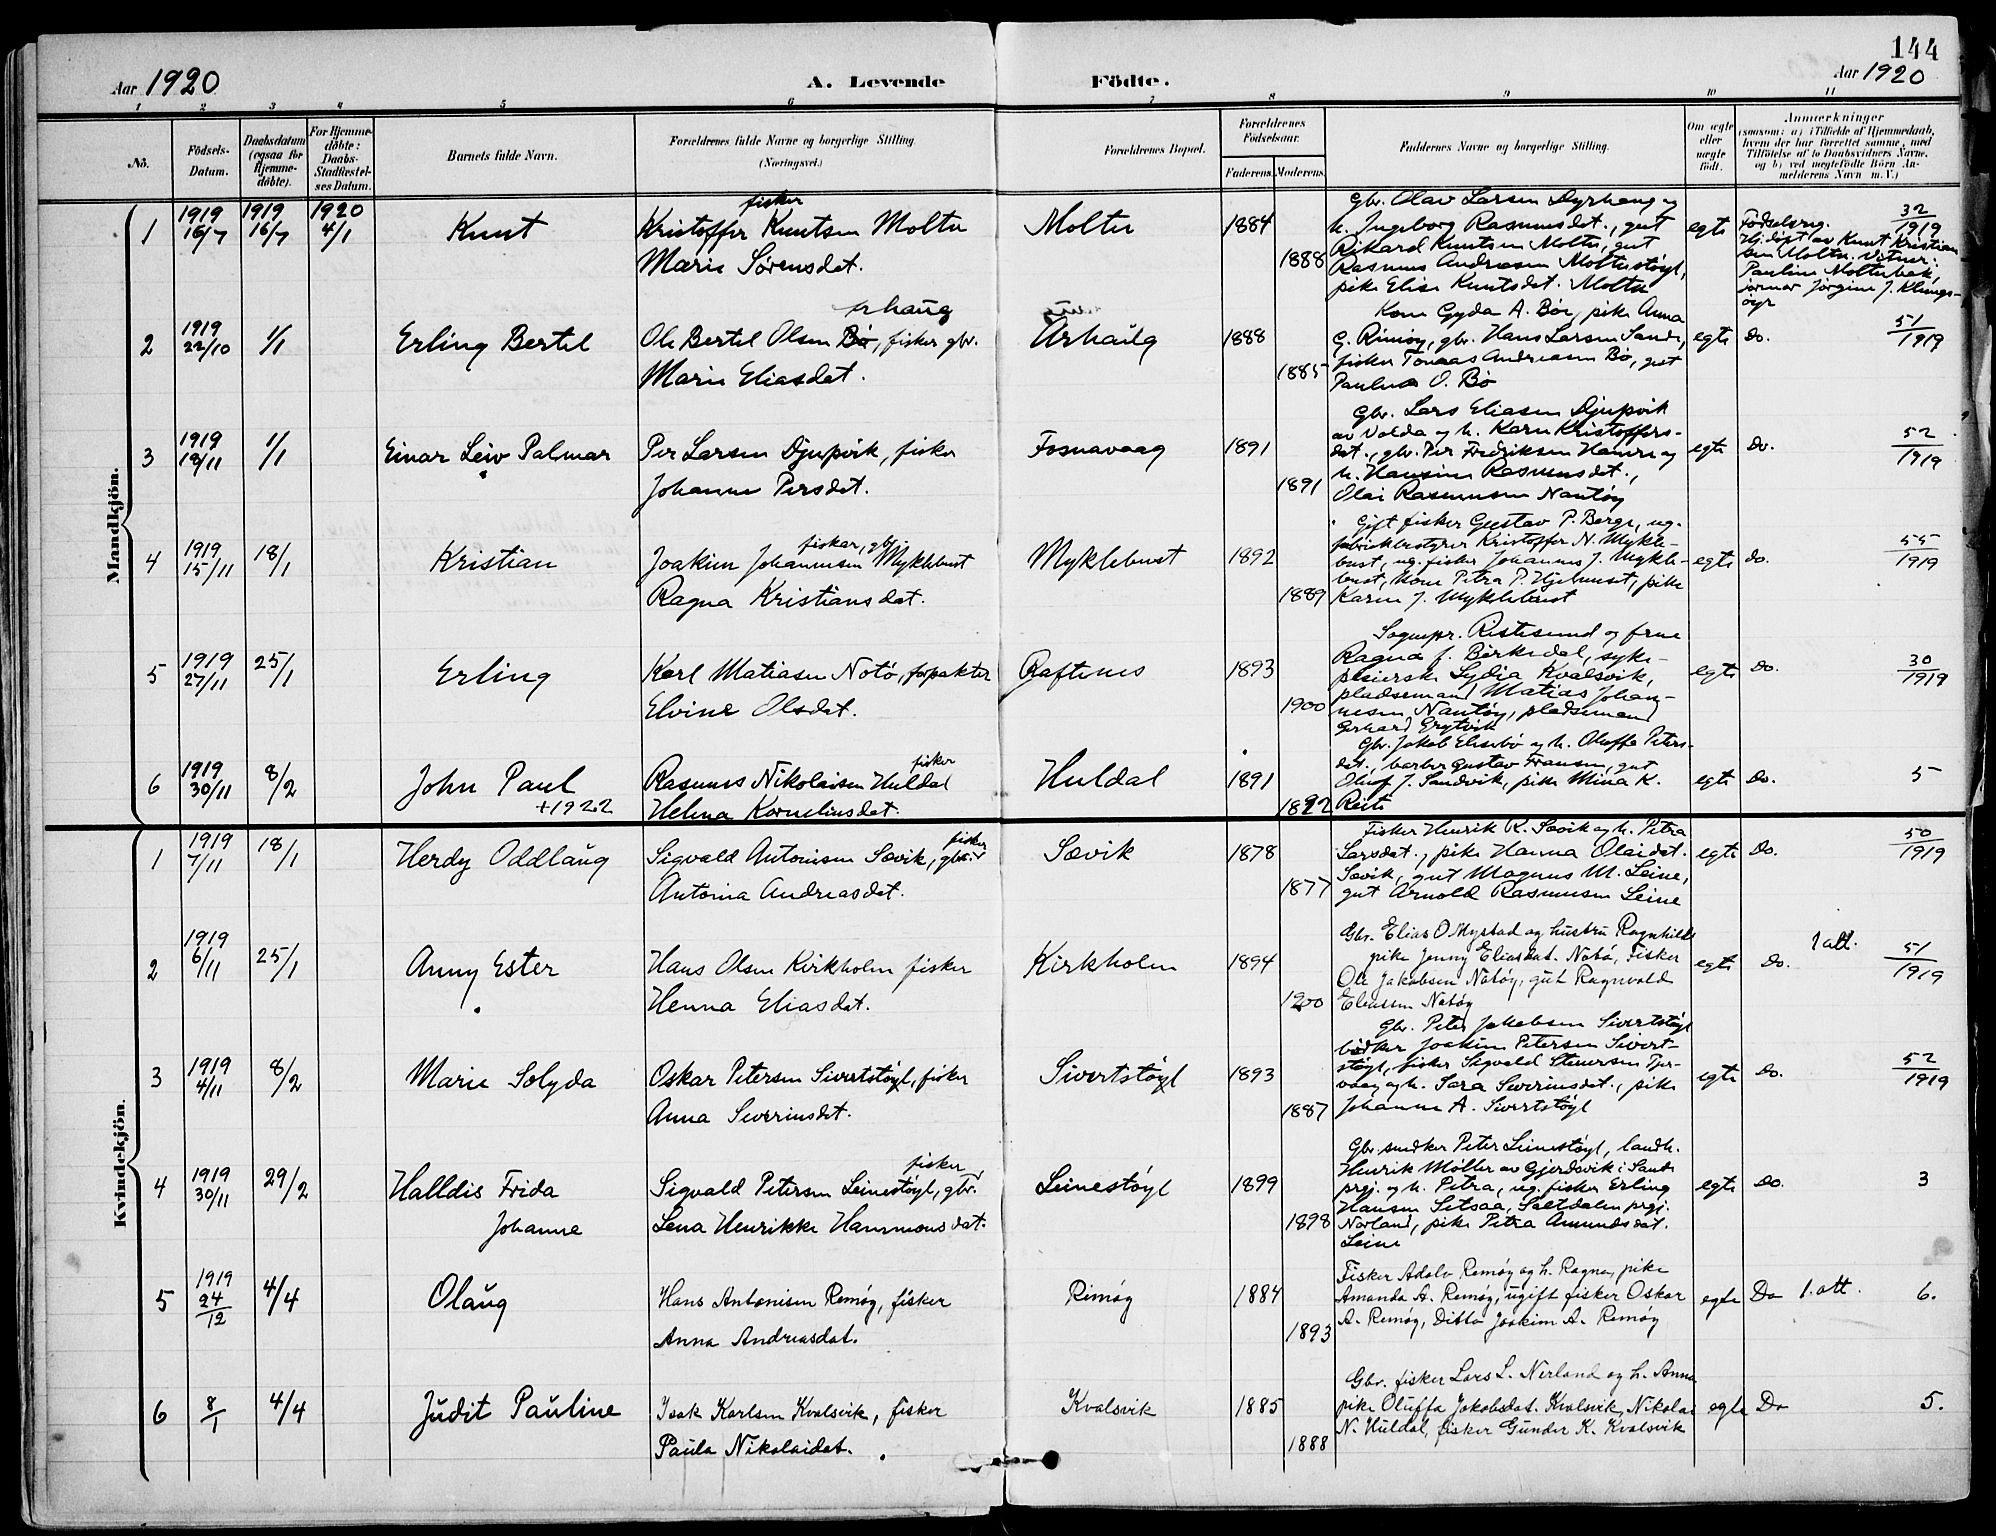 144
Aar 1920 A. Levende Födte. Aar 1920
1 2 3 4 5 6 7 8 9 10 11
No.
Födsels-Datum.
Daabsdatum (ogsaa for Hjemme-döbte).
For Hjemme-döbte: Daabs-Stadfæstel-ses Datum.
Barnets fulde Navn.
Forældrenes fulde Navne og borgerlige Stilling. (Næringsvei.)
Forældrenes Bopæl.
Forældrenes Födselsaar.
Faderens. Moderens.
Faddernes Navne og borgerlige Stilling.
Om ægte eller uægte födt.
Anmærkninger
(saasom: a) i Tilfælde af Hjemmedaab,
hvem der har forrettet samme, med
Tilföielse af to Daabsvidners Navne,
og b) ved uegtefödte Börn An-
melderens Navn m. V.)
Mandkjön.
1 1919 16/7 1919 16/7 1920 4/1 Knut
fisker
Kristoffer Knutsen Moltu
Marie Sørensdat.
Moltu 1884 1888
Gbr. Olav Larsen Dyrhaug og
h. Ingeborg Rasmusdat., gut
Rikard Knutsen Moltu, gut
Rasmus Andreasen Moltustøyl,
pike Elise Knutsdat. Moltu
egte
Fødselsreg. 32/1919
Hj.døpt av Knut Kristian
sen Moltu. Vitner:
Pauline Molturbak,
jormor Jørgine J. Klungs-
øyr
2 1919 22/10 1/1 Erling Bertel
urhaug
Ole Bertel Olsen Bø, fisker gbr.
Marie Eliasdat.
Urhaug 1888 1885
Kone Gyda A. Bøe, pike Anna
G. Rimøy, gbr. Hans Larsen Sande,
fisker Tomas Andreasen Bø, gut
Paulus O. Bø
egte Do. 51/1919
3 1919 18/11 1/1 Einar Leiv Palmar
Per Larsen Djupvik, fisker
Johanne Persdat.
Fosnavaag 1891 1891
Gbr. Lars Eliasen Djupvik
av Volda og h. Karen Kristoffers-
dat., gbr. Per Fredriksen Hamre og
h. Hansine Rasmusdat.,
Olai Rasmussen Nautøy
egte Do. 52/1919
4 1919 15/11 18/1 Kristian
fisker, gbr.
Joakim Johannesen Myklebust
Ragna Kristiansdat.
Myklebust 1892 1889
Gift fisker Gustav P. Berge, ug.
fabrikbestyrer Kristoffer N. Mykle-
bust, ug. fisker Johannes J. Mykle-
bust, kone Petra P. Hjelmset, pike
Karen J. Myklebust
egte Do. 55/1919
5 1919 27/11 25/1 Erling
Karl Matiasen Notø, forpakter
Elvine Olsdat.
Raftenes 1893 1900
Sognepr. Ristesund og frue
Ragna f. Birkedal, syke-
pleierske Lydia Kvalsvik,
pladsemand Matias Johan-
nesen Nautøy, pladsemand
Gerhard Grytvik
egte Do. 30/1919
6 1919 30/11 8/2 John Paul
+1922
fisker
Rasmus Nikolaisen Huldal
Helena Korneliusdat.
Huldal 1891 1892
Gbr. Jakob Elisebø og h. Oluffa Peters-
dat., barber Gustav Fransen, gut
Oluf J. Sandvik, pike Mina K.
Reite
egte Do. 5
Kvindekjön.
1 1919 7/11 18/1 Herdy Oddlaug
fisker
Sigvald Antonisen Sævik, gbr.
Antonia Andreasdat.
Sævik 1878 1877
Fisker Henrik K. Sævik og h. Petra
Larsdat., pike Hanna Olaidat.
Sævik, gut Magnus M. Leine,
gut Arnold Rasmussen Leine
egte Do. 50/1919
2 1919 6/11 25/1 Anny Ester
Hans Olsen Kirkholm fisker
Henna Eliasdat.
Kirkholm 1894 1900
Gbr. Elias O Mystad og hustru Ragnhild
pike Jenny Eliasdat. Notø, Fisker
Ole Jakobsen Notøy, gut Ragnvald
Eliassen Notøy
egte Do. 1 att. 51/1919
3 1919 4/11 8/2 Marie Solyda
Oskar Petersen Sivertstøyl, fisker
Anna Severinsdat.
Sivertstøyl 1893 1887
Gbr. Peter Jakobsen Sivertstøyl
bødker Joakim Petersen Sivert-
støyl, fisker Sigvald Stenersen Tjer-
vaag og h. Sara Severinsdat., pike
Johanne A. Sivertstøyl
egte Do. 52/1919
4 1919 30/11 29/2 Halldis Frida
Johanne
fisker
Sigvald Petersen Leinestøyl, gbr.
Lena Henrikke Hammonsdat.
Leinestøyl 1899 1898
Gbr. snedker Peter Leinestøyl, landh.
Henrik Møller av Gjerdsvik i Sande
prgj. og h. Petra, ug. fisker Erling
Hansen Setsaa, Saltdalen prgj.
Norland, pike Petra Amundsdat.
Leine
egte Do. 3
5 1919 24/12 4/4 Olaug
Hans Antonisen Remøy, fisker
Anna Andreasdat.
Remøy 1884 1893
Fisker Adolv Remøy og h. Ragna, pike
Amanda A. Remøy, ugift fisker Oskar
A. Remøy, Ditto Joakim A. Remøy
egte Do 1. att. 6.
6 8/1 4/4 Judit Pauline
Isak Karlsen Kvalsvik, fisker
Paula Nikolaidat.
Kvalsvik 1885 1888
Gbr. fisker Lars L. Nerland og h. Anna
pike Oluffa Jakobsdat. Kvalsvik, Nikolai
N. Huldal, fisker Gunder K. Kvalsvik
egte Do 5.